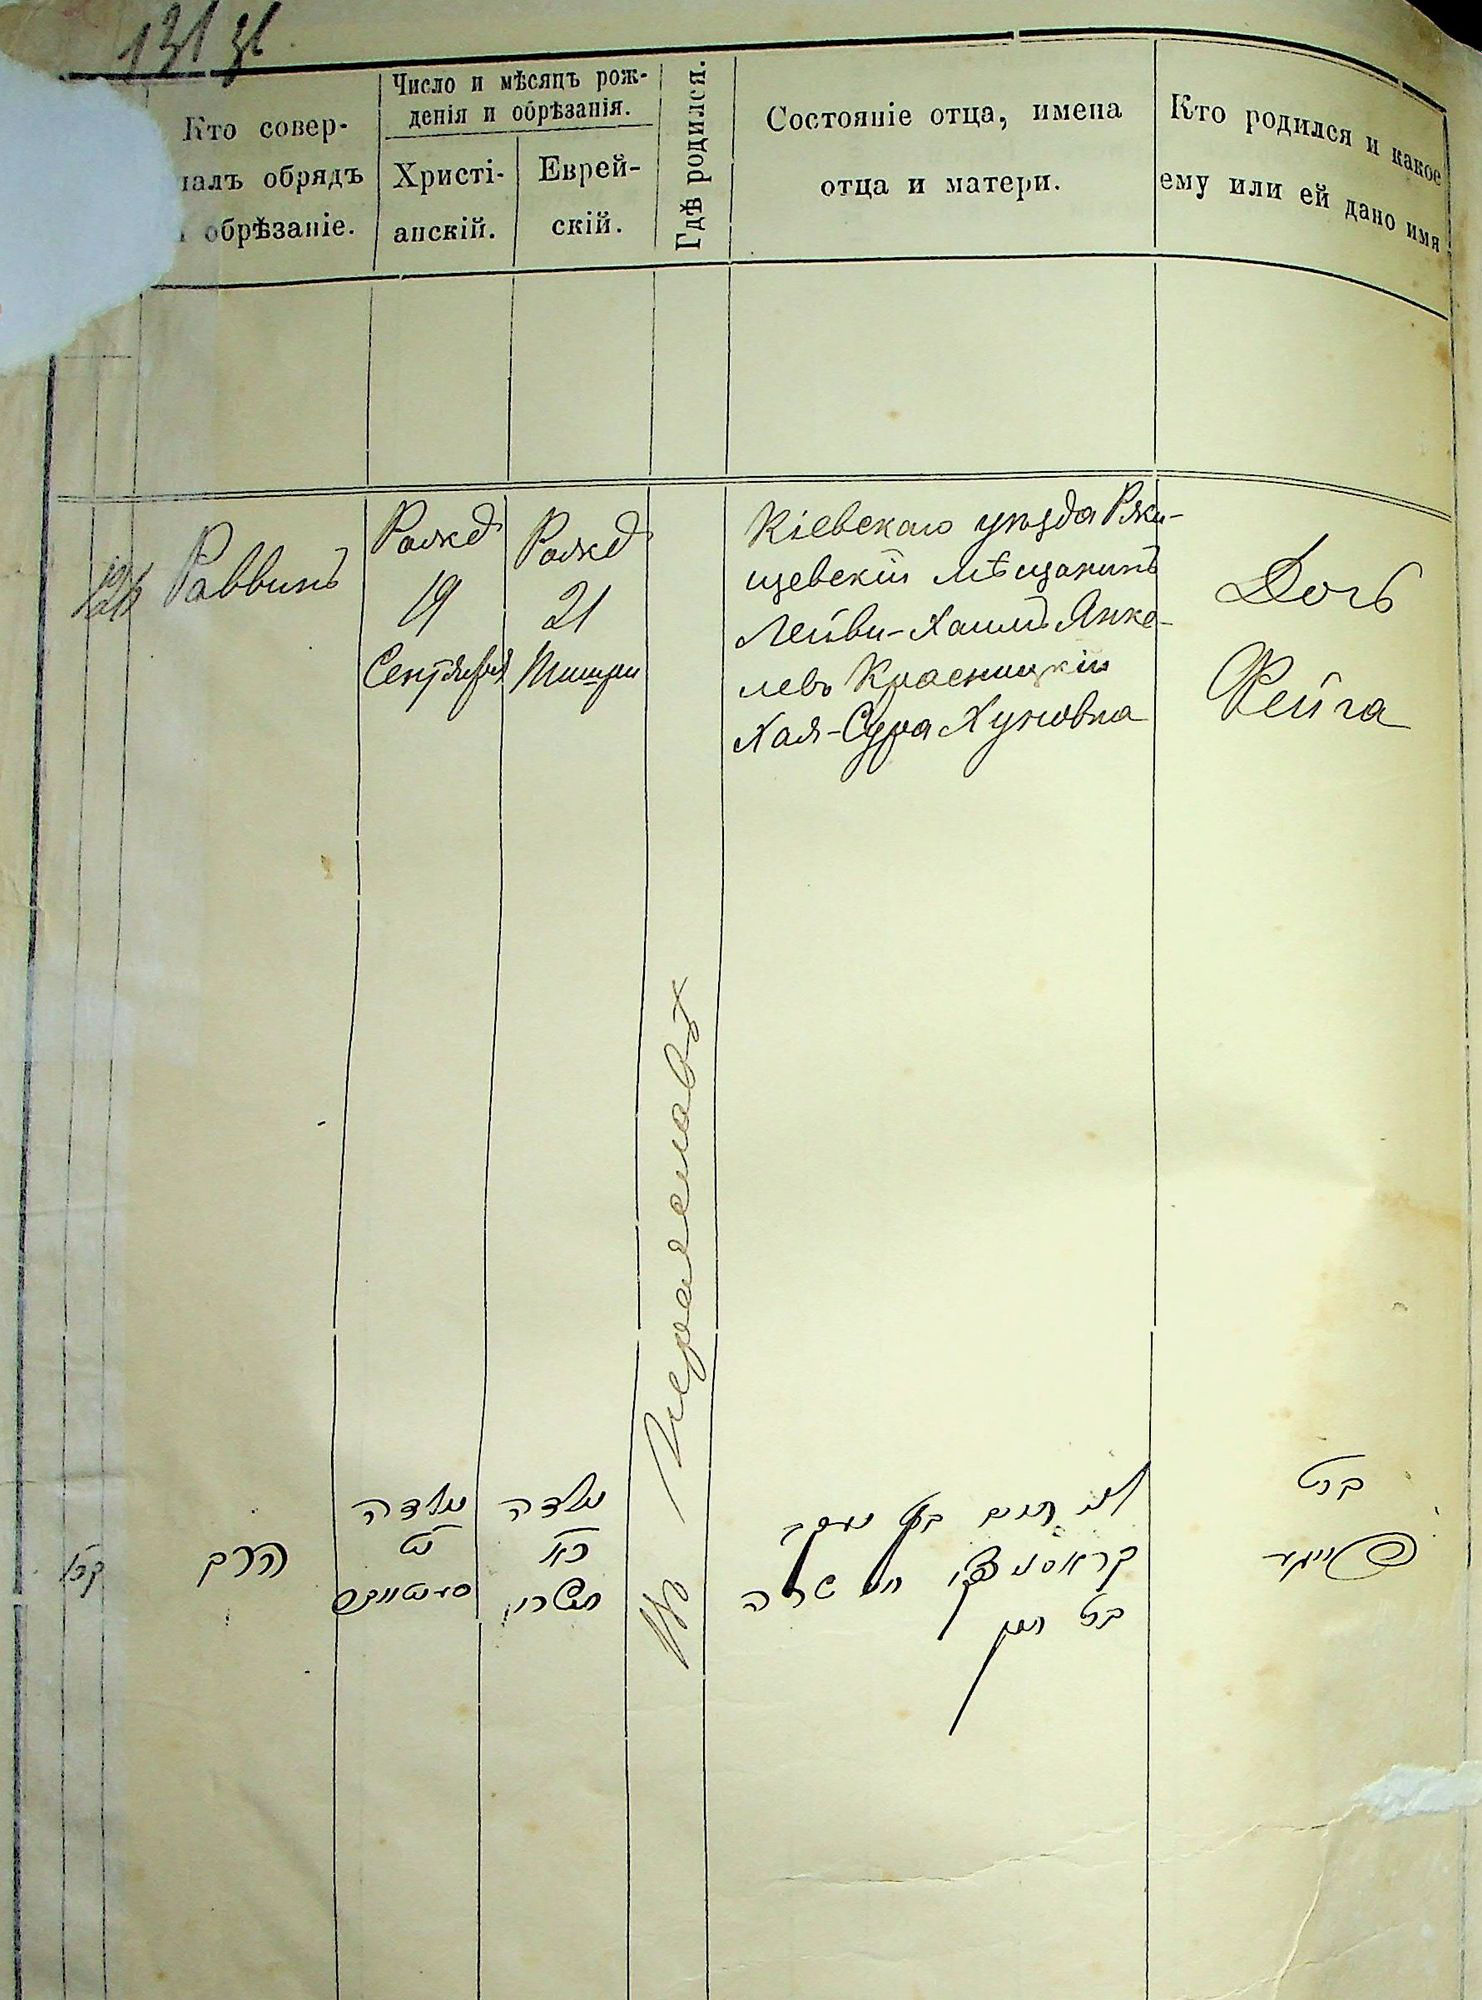 131 31
Кто совер-
шалъ обрядъ
обрѣзаніе.
Число и мѣсяцъ рож-
денія и обрѣзанія.
Христі-
анскій.
Еврей-
скій.
Гдѣ родился.
Состояніе отца, имена
отца и матери.
Кто родился и какое
ему или ей дано имя
Раввинъ
Рожд
19
Сентября
Рожд
21
Тишри
Въ Переяславѣ
Кіевскаго уѣзда Ржи-
щевскій мѣщанинъ
Лейви-Хаимъ Янке-
левъ Красницкій
Хая-Сура Хуновна
Дочь
Фейга
הרב
נולדה
יט
סענטיאבר
נולדה
כא
תשרי
לוי חיים בן יעקב
קראסניצקי חי׳ שרה
בת חנן
בת
פייגע